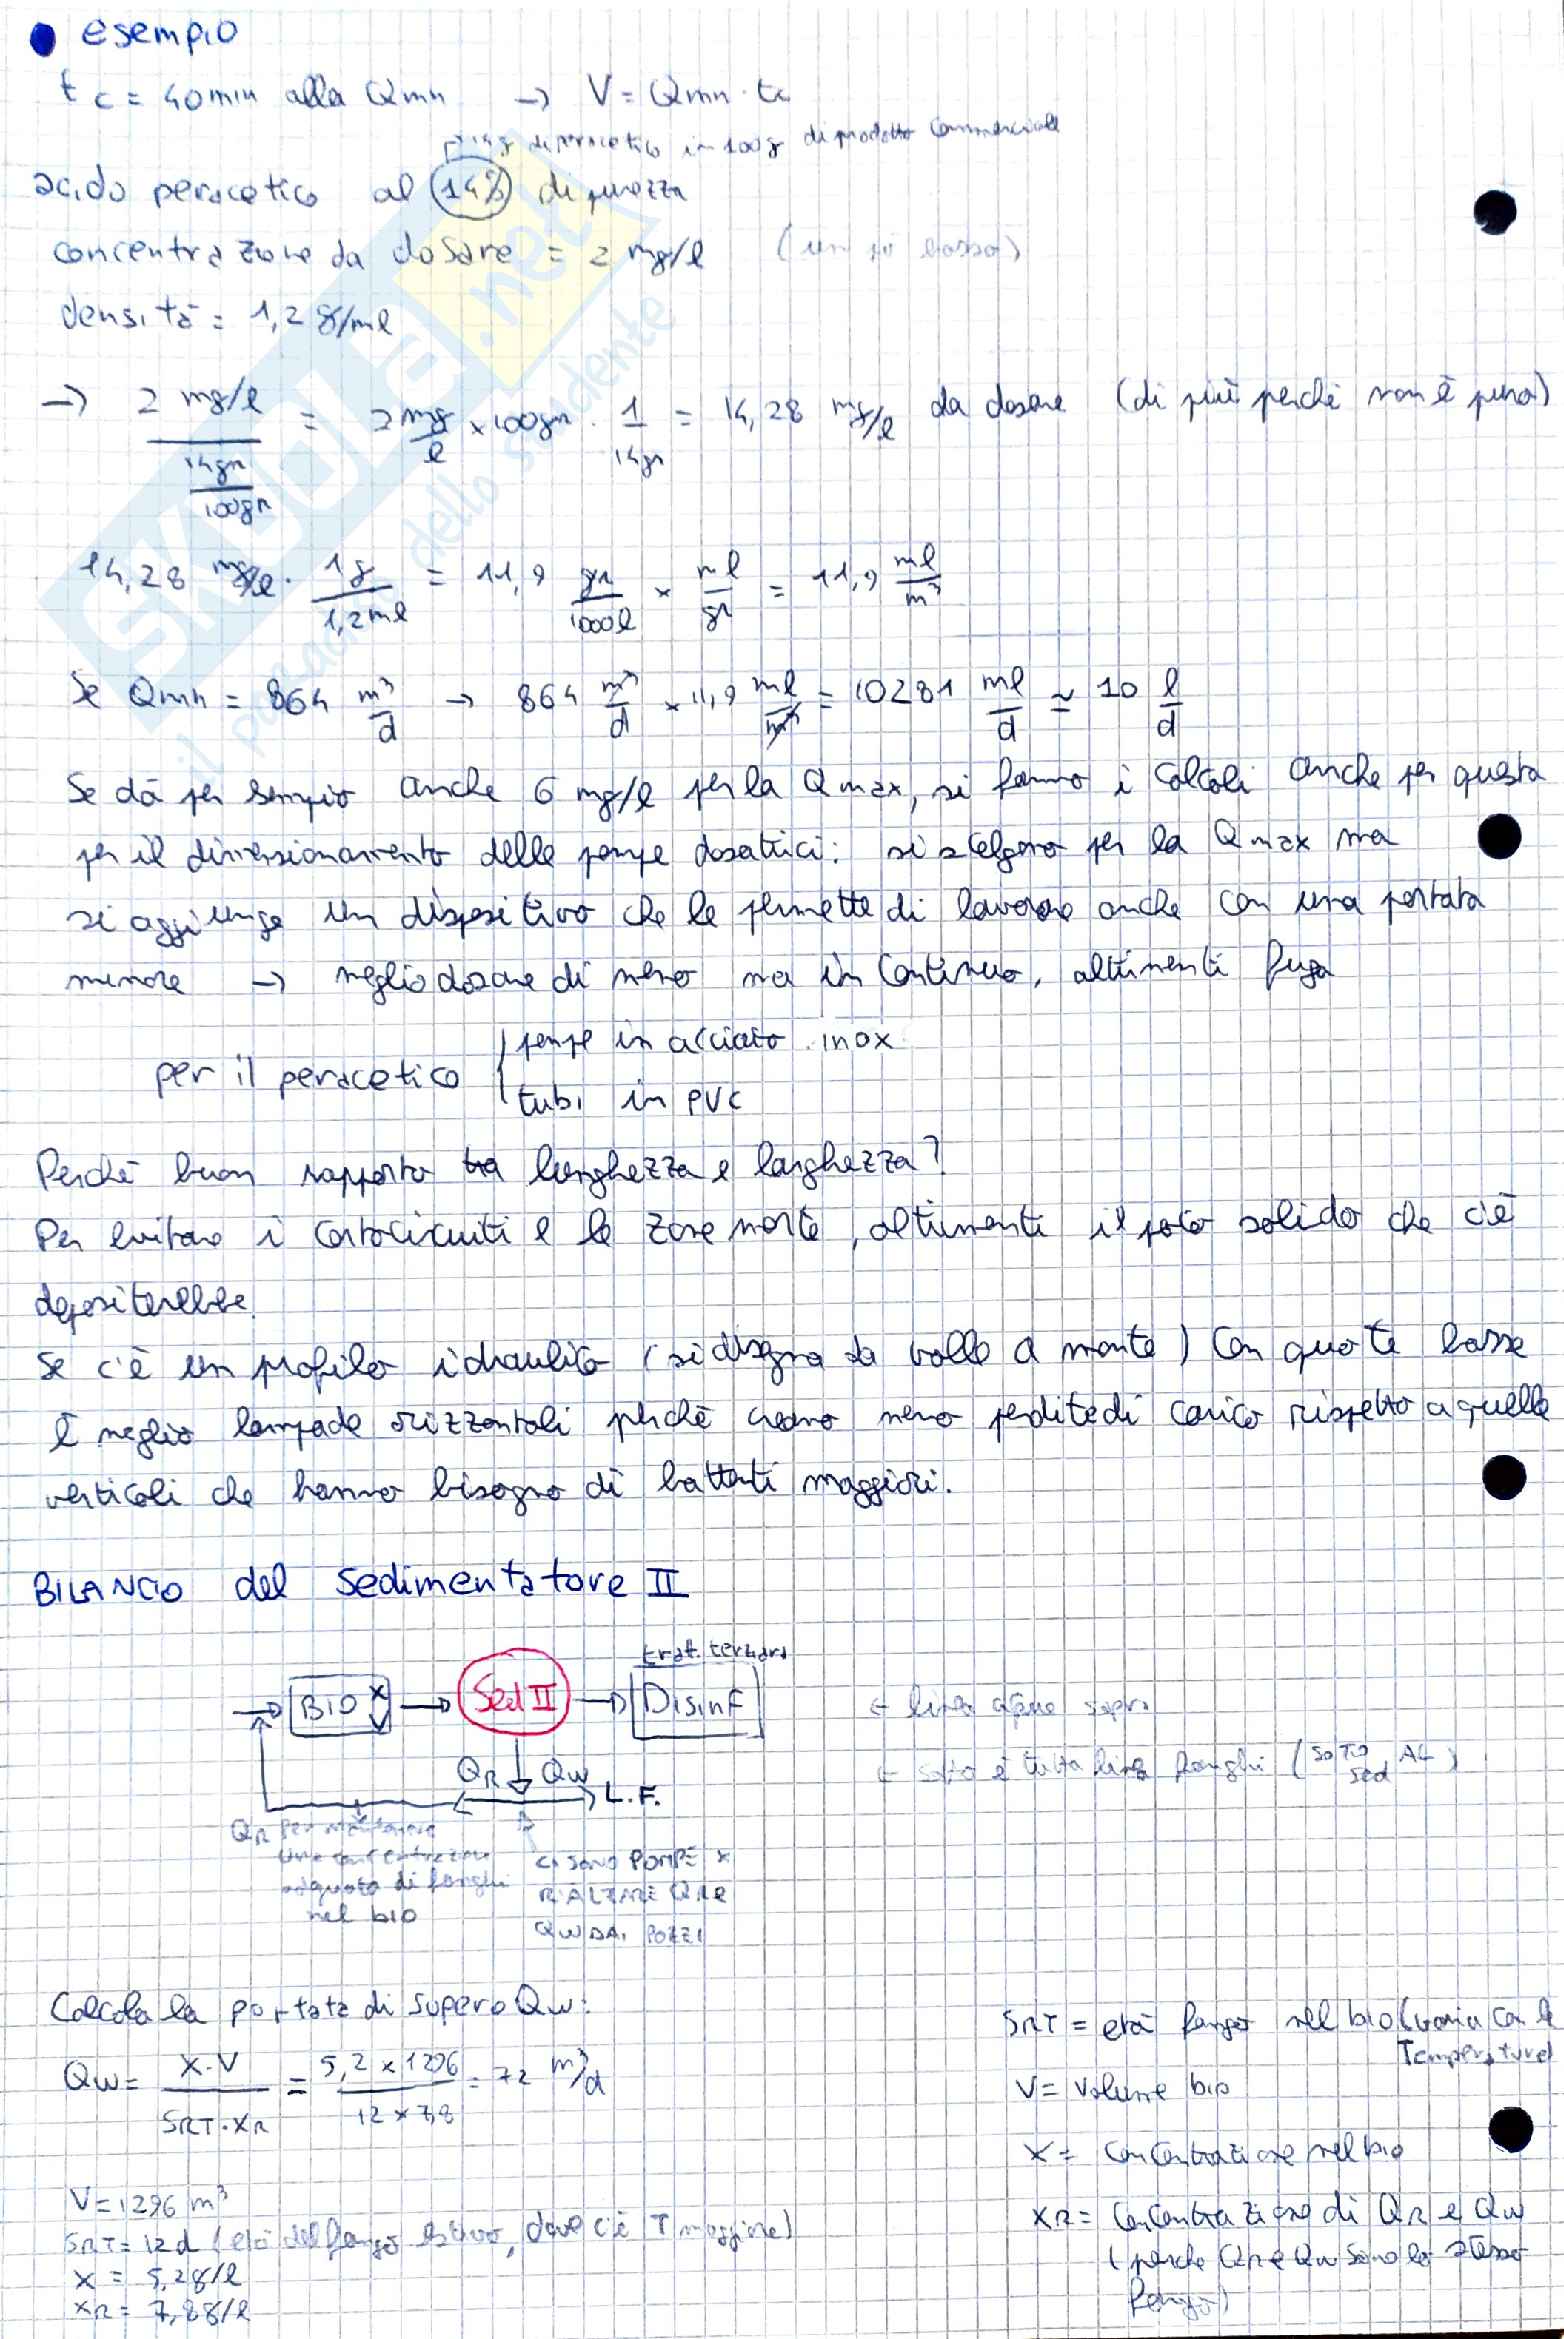 esempio
tc = 40min alla Qmn → V = Qmn · tc
14g di peracetico in 100g di prodotto commerciale
acido peracetico al 14% di purezza
concentrazione da dosare = 2 mg/l (un pò basso)
densità = 1,2 g/ml
→ 2 mg/l / (14gr/100gr) = 2 mg/l × 100gr · 1/14gr = 14,28 mg/l da dosare (di più perchè non è puro)
14,28 mg/l · 1g/1,2ml = 11,9 gr/1000l × ml/gr = 11,9 ml/m³
Se Qmn = 864 m³/d → 864 m³/d × 11,9 ml/m³ = 10281 ml/d ≃ 10 l/d
Se dà per sempio anche 6 mg/l per la Qmax, si fanno i calcoli anche per questa
per il dimensionamento delle pompe dosatrici: si scelgono per la Qmax ma
si aggiunge un dispositivo che le permette di lavorare anche con una portata
minore → meglio dosare di meno ma in continuo, altrimenti fuga
per il peracetico { pompe in acciaio inox
tubi in PVC
Perchè buon rapporto tra lunghezza e larghezza?
Per evitare i cortocircuiti e le zone morte, altrimenti il poco solido che c'è
depositerebbe.
Se c'è un profilo idraulico (si disegna da valle a monte) con quote basse
è meglio lampade orizzontali perchè creano meno perdite di carico rispetto a quelle
verticali che hanno bisogno di battenti maggiori.
BILANCIO del sedimentatore II
tratt. terziario
BIO X V → Sed II → Disinf ← linea acque sopra
QR QW L.F. ← sotto è tutta linea fanghi (SOTTO sed AL)
QR per mantenere
una concentrazione
adeguata di fanghi
nel bio
ci sono POMPE x
RIALZARE QR e
QW DAI POZZI
Calcola la portata di supero Qw:
Qw = X·V / SRT·XR = 5,2 × 1296 / 12 × 7,8 = 72 m³/d
V = 1296 m³
SRT = 12 d (età del fango estivo, dove c'è T maggiore)
X = 5,2 g/l
XR = 7,8 g/l
SRT = età fango nel bio (varia con la
Temperatura)
V = volume bio
X = concentrazione nel bio
XR = concentrazione di QR e QW
(perchè QR e QW sono lo stesso
fango)
SKUOLA.net
il paradiso dello studente